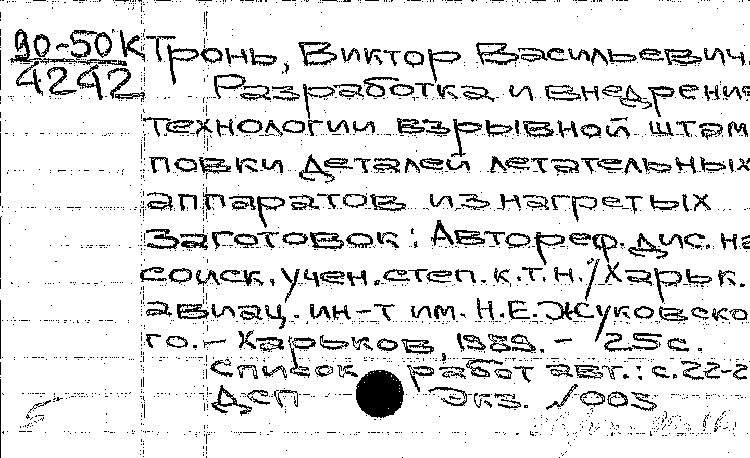 90-50К
4242
Тронь, Виктор Васильевич.
Разработка и внедрение
технологии взрывной штам
повки деталей летательных
аппаратов из нагретых
заготовок: Автореф. дис. на
соиск. учен. степ. к.т.н./Харьк.
авиац. ин-т им. Н.Е.Жуковско
го. - Харьков, 1989. - 25 с.
Список работ авт.: с.22-2
ДСП Экз. №003